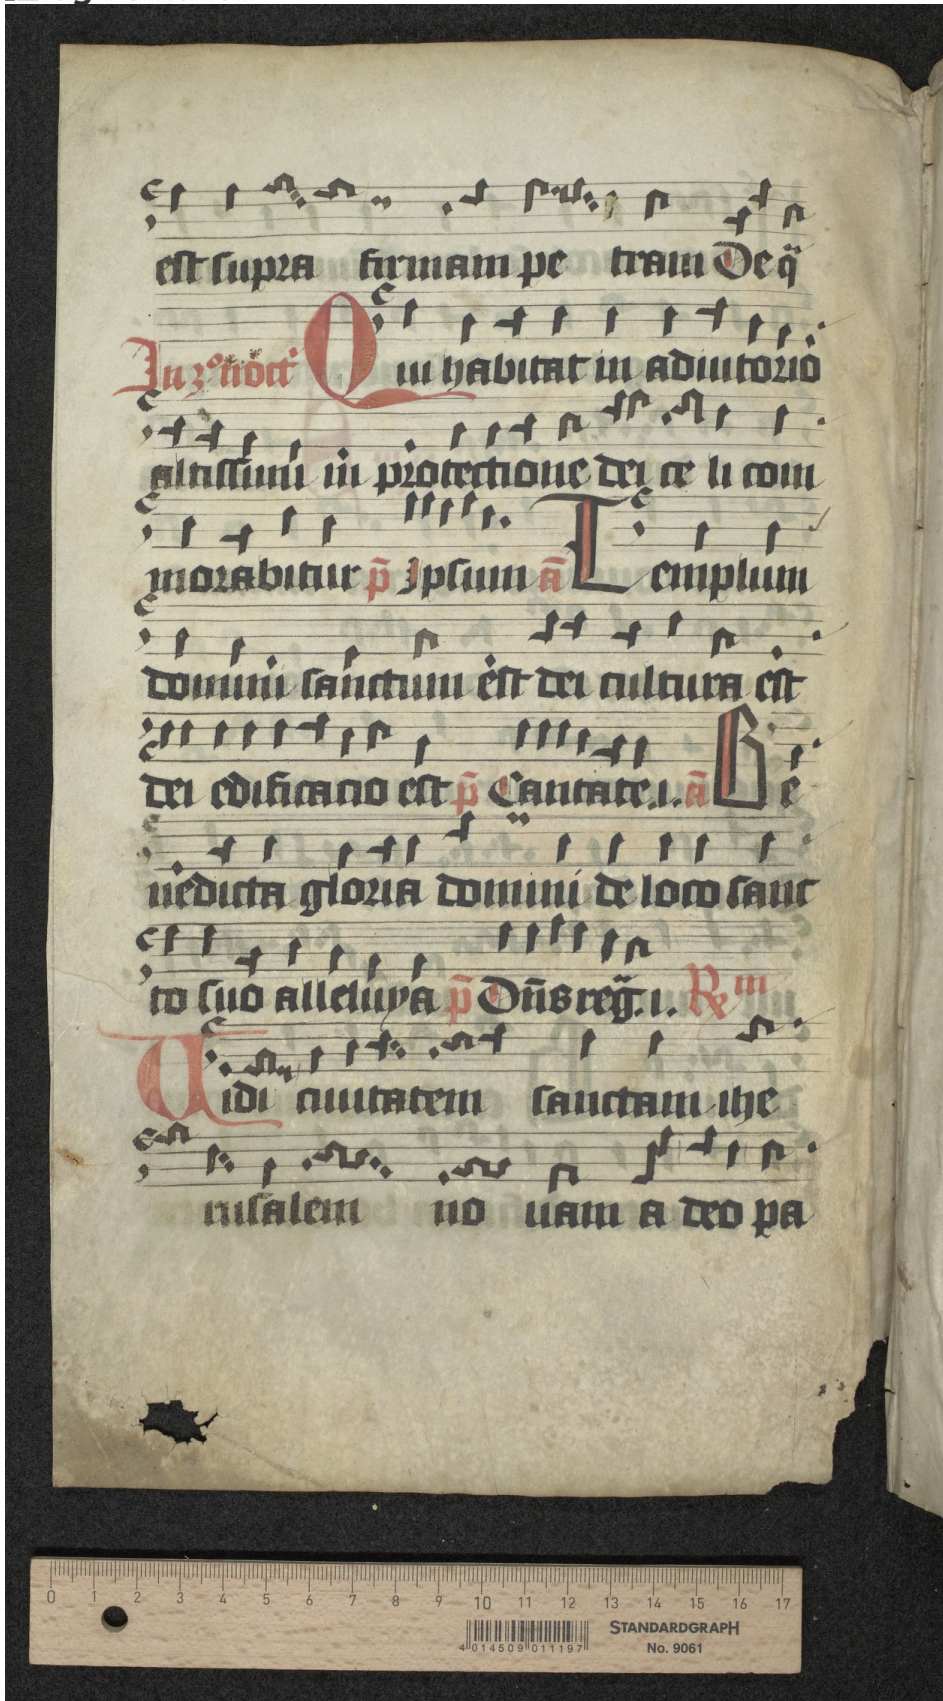 est supra firmam pe tram De q̄
In z° noct̄ Qui habitat in adiutorio
altissimi in protectione dei ce li com
morabitur p̄ Ipsum ā Templum
domini sanctum est dei cultura est
dei edificatio est p̄ Cantate .i. ā Be
nedicta gloria domini de loco sanc
to suo alleluya p̄ Dn̄s reḡ .i. Rm
Uidi ciuitatem sanctam ihe
rusalem no uam a deo pa
0 1 2 3 4 5 6 7 8 9 10 11 12 13 14 15 16 17
4 014509 011197
STANDARDGRAPH
No. 9061